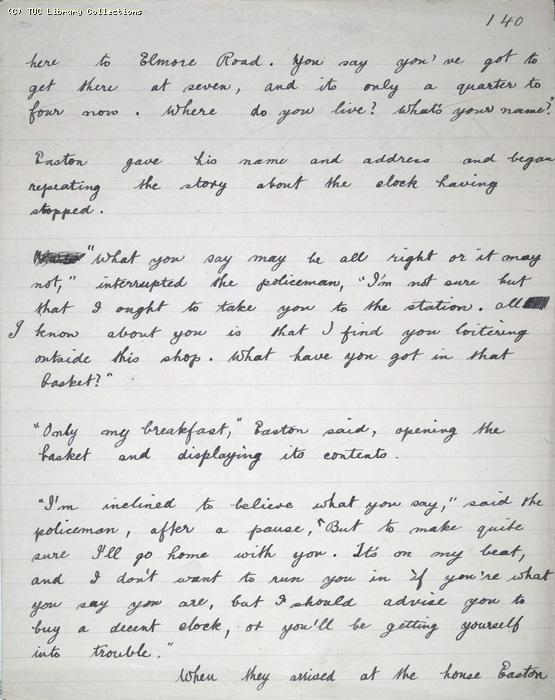 (C) TUC Library Collections
140
here to Elmore Road. You say you've got to
get there at seven, and its only a quarter to
four now. Where do you live? What's your name?"
Easton gave his name and address and began
repeating the story about the clock having
stopped.
"What you say may be all right or it may
not," interrupted the policeman, "I'm not sure but
that I ought to take you to the station. all
I know about you is that I find you loitering
outside this shop. What have you got in that
basket?"
"Only my breakfast," Easton said, opening the
basket and displaying its contents.
"I'm inclined to believe what you say," said the
policeman, after a pause, "But to make quite
sure I'll go home with you. It's on my beat,
and I don't want to run you in if you're what
you say you are, but I should advise you to
buy a decent clock, or you'll be getting yourself
into trouble."
When they arrived at the house Easton